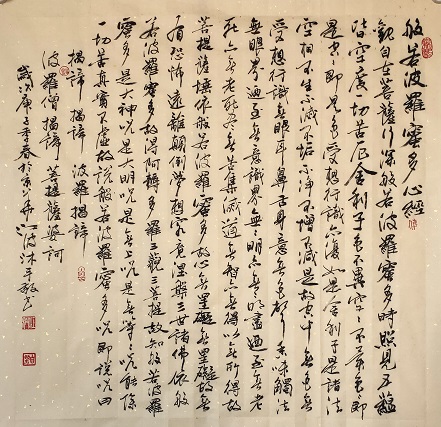 般若波羅蜜多心經
觀自在菩薩行深般若波羅蜜多時照見五蘊
皆空度一切苦厄舍利子色不異空空不異色色即
是空空即是色受想行識亦復如是舍利子是諸法
空相不生不滅不垢不淨不增不減是故空中無色無
受想行識無眼耳鼻舌身意無色聲香味觸法
無眼界乃至無意識界無無明亦無無明盡乃至無老
死亦無老死盡無苦集滅道無智亦無得以無所得故
菩提薩埵依般若波羅蜜多故心無罣礙無罣礙故無
有恐怖遠離顛倒夢想究竟涅槃三世諸佛依般
若波羅蜜多故得阿耨多羅三藐三菩提故知般若波羅
蜜多是大神咒是大明咒是無上咒是無等等咒能除
一切苦真實不虛故說般若波羅蜜多咒即說咒曰
揭諦揭諦 波羅揭諦
波羅僧揭諦 菩提薩婆訶
歲次庚子季春於